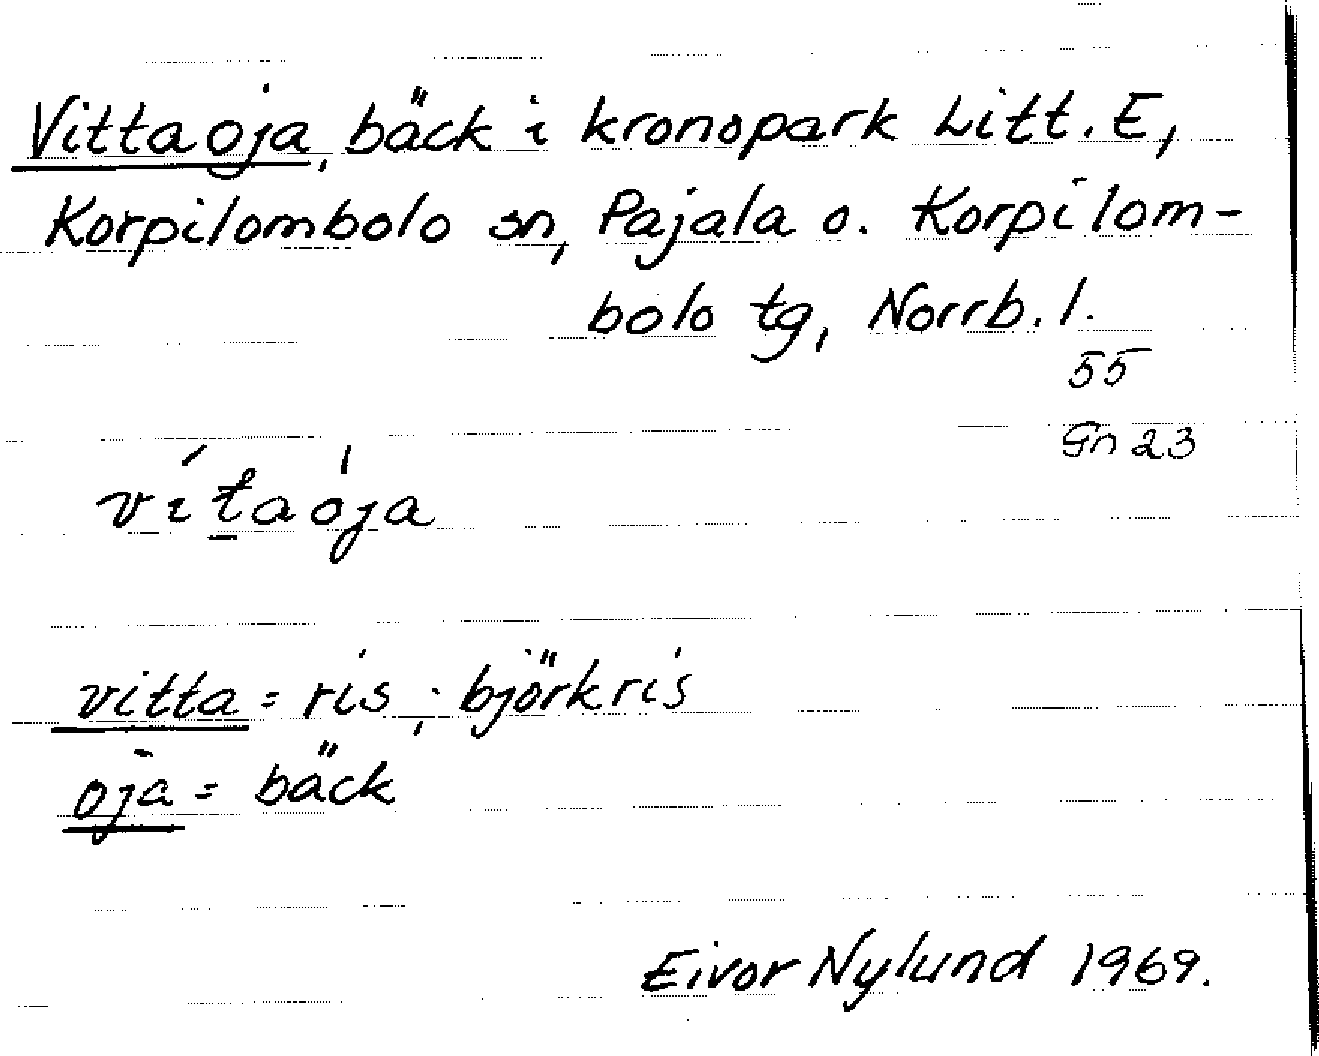 Vittaoja, bäck i kronopark Litt. E,
Korpilombolo sn, Pajala o. Korpilom-
bolo tg, Norrb. l.
55
Gn 23
vítaòja
vitta = ris ; björkris
oja = bäck
Eivor Nylund 1969.